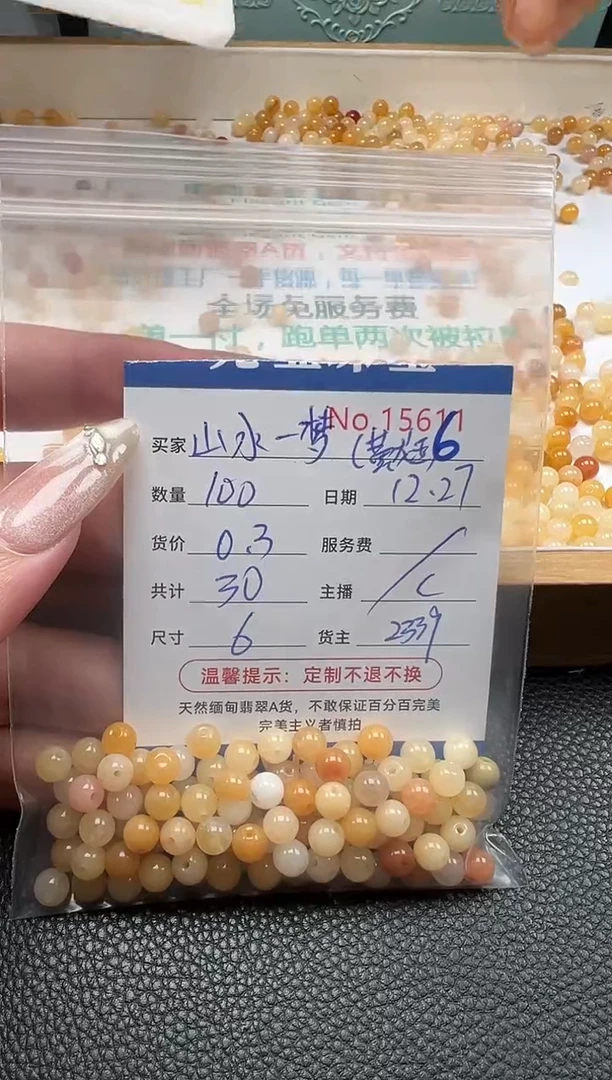 全场免服务费
第一付，跑单两次被拉
No.15611
买家 山水一梦 6
数量 100 日期 12.27
货价 0.3 服务费 /
共计 30 主播 C
尺寸 6 货主 2339
温馨提示：定制不退不换
天然缅甸翡翠A货，不敢保证百分百完美
完美主义者慎拍